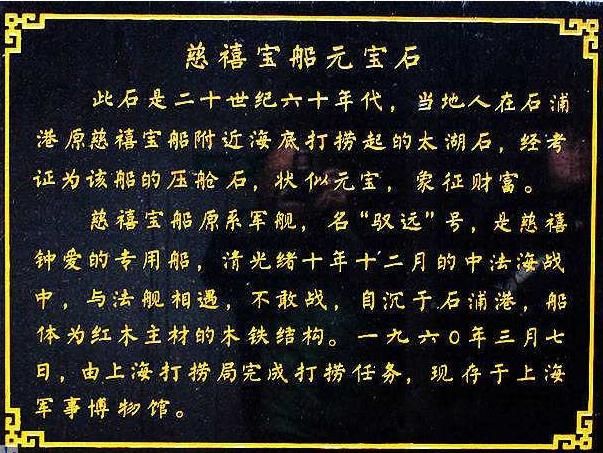 慈禧宝船元宝石
此石是二十世纪六十年代，当地人在石浦
港原慈禧宝船附近海底打捞起的太湖石，经考
证为该船的压舱石，状似元宝，象征财富。
慈禧宝船原系军舰，名“驭远”号，是慈禧
钟爱的专用船，清光绪十年十二月的中法海战
中，与法舰相遇，不敢战，自沉于石浦港，船
体为红木主材的木铁结构。一九六〇年三月七
日，由上海打捞局完成打捞任务，现存于上海
军事博物馆。